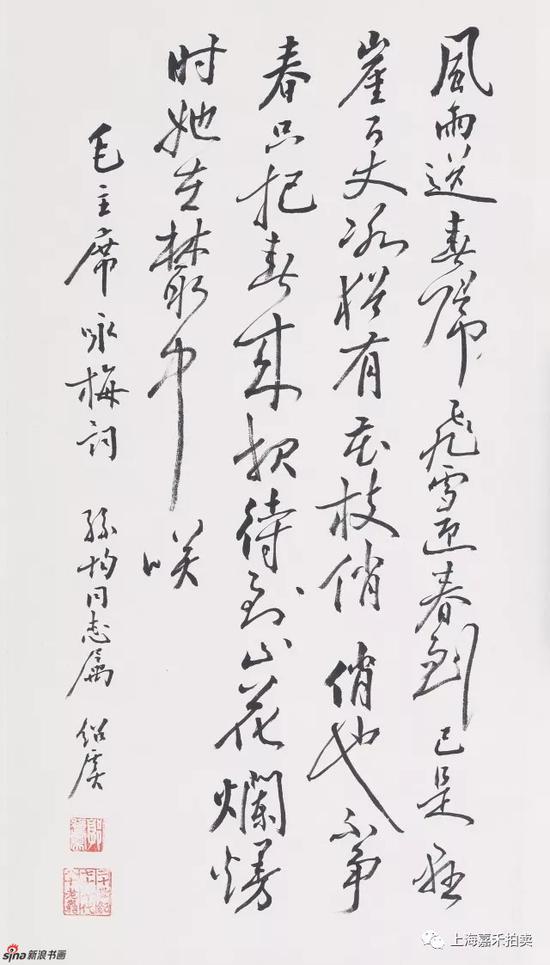 風雨送春歸飛雪迎春到已是懸
崖百丈冰猶有花枝俏俏也不争
春只把春来报待到山花爛熳
时她在叢中咲
毛主席咏梅词 孫均同志属 绍虞
sina新浪书画
上海嘉禾拍卖